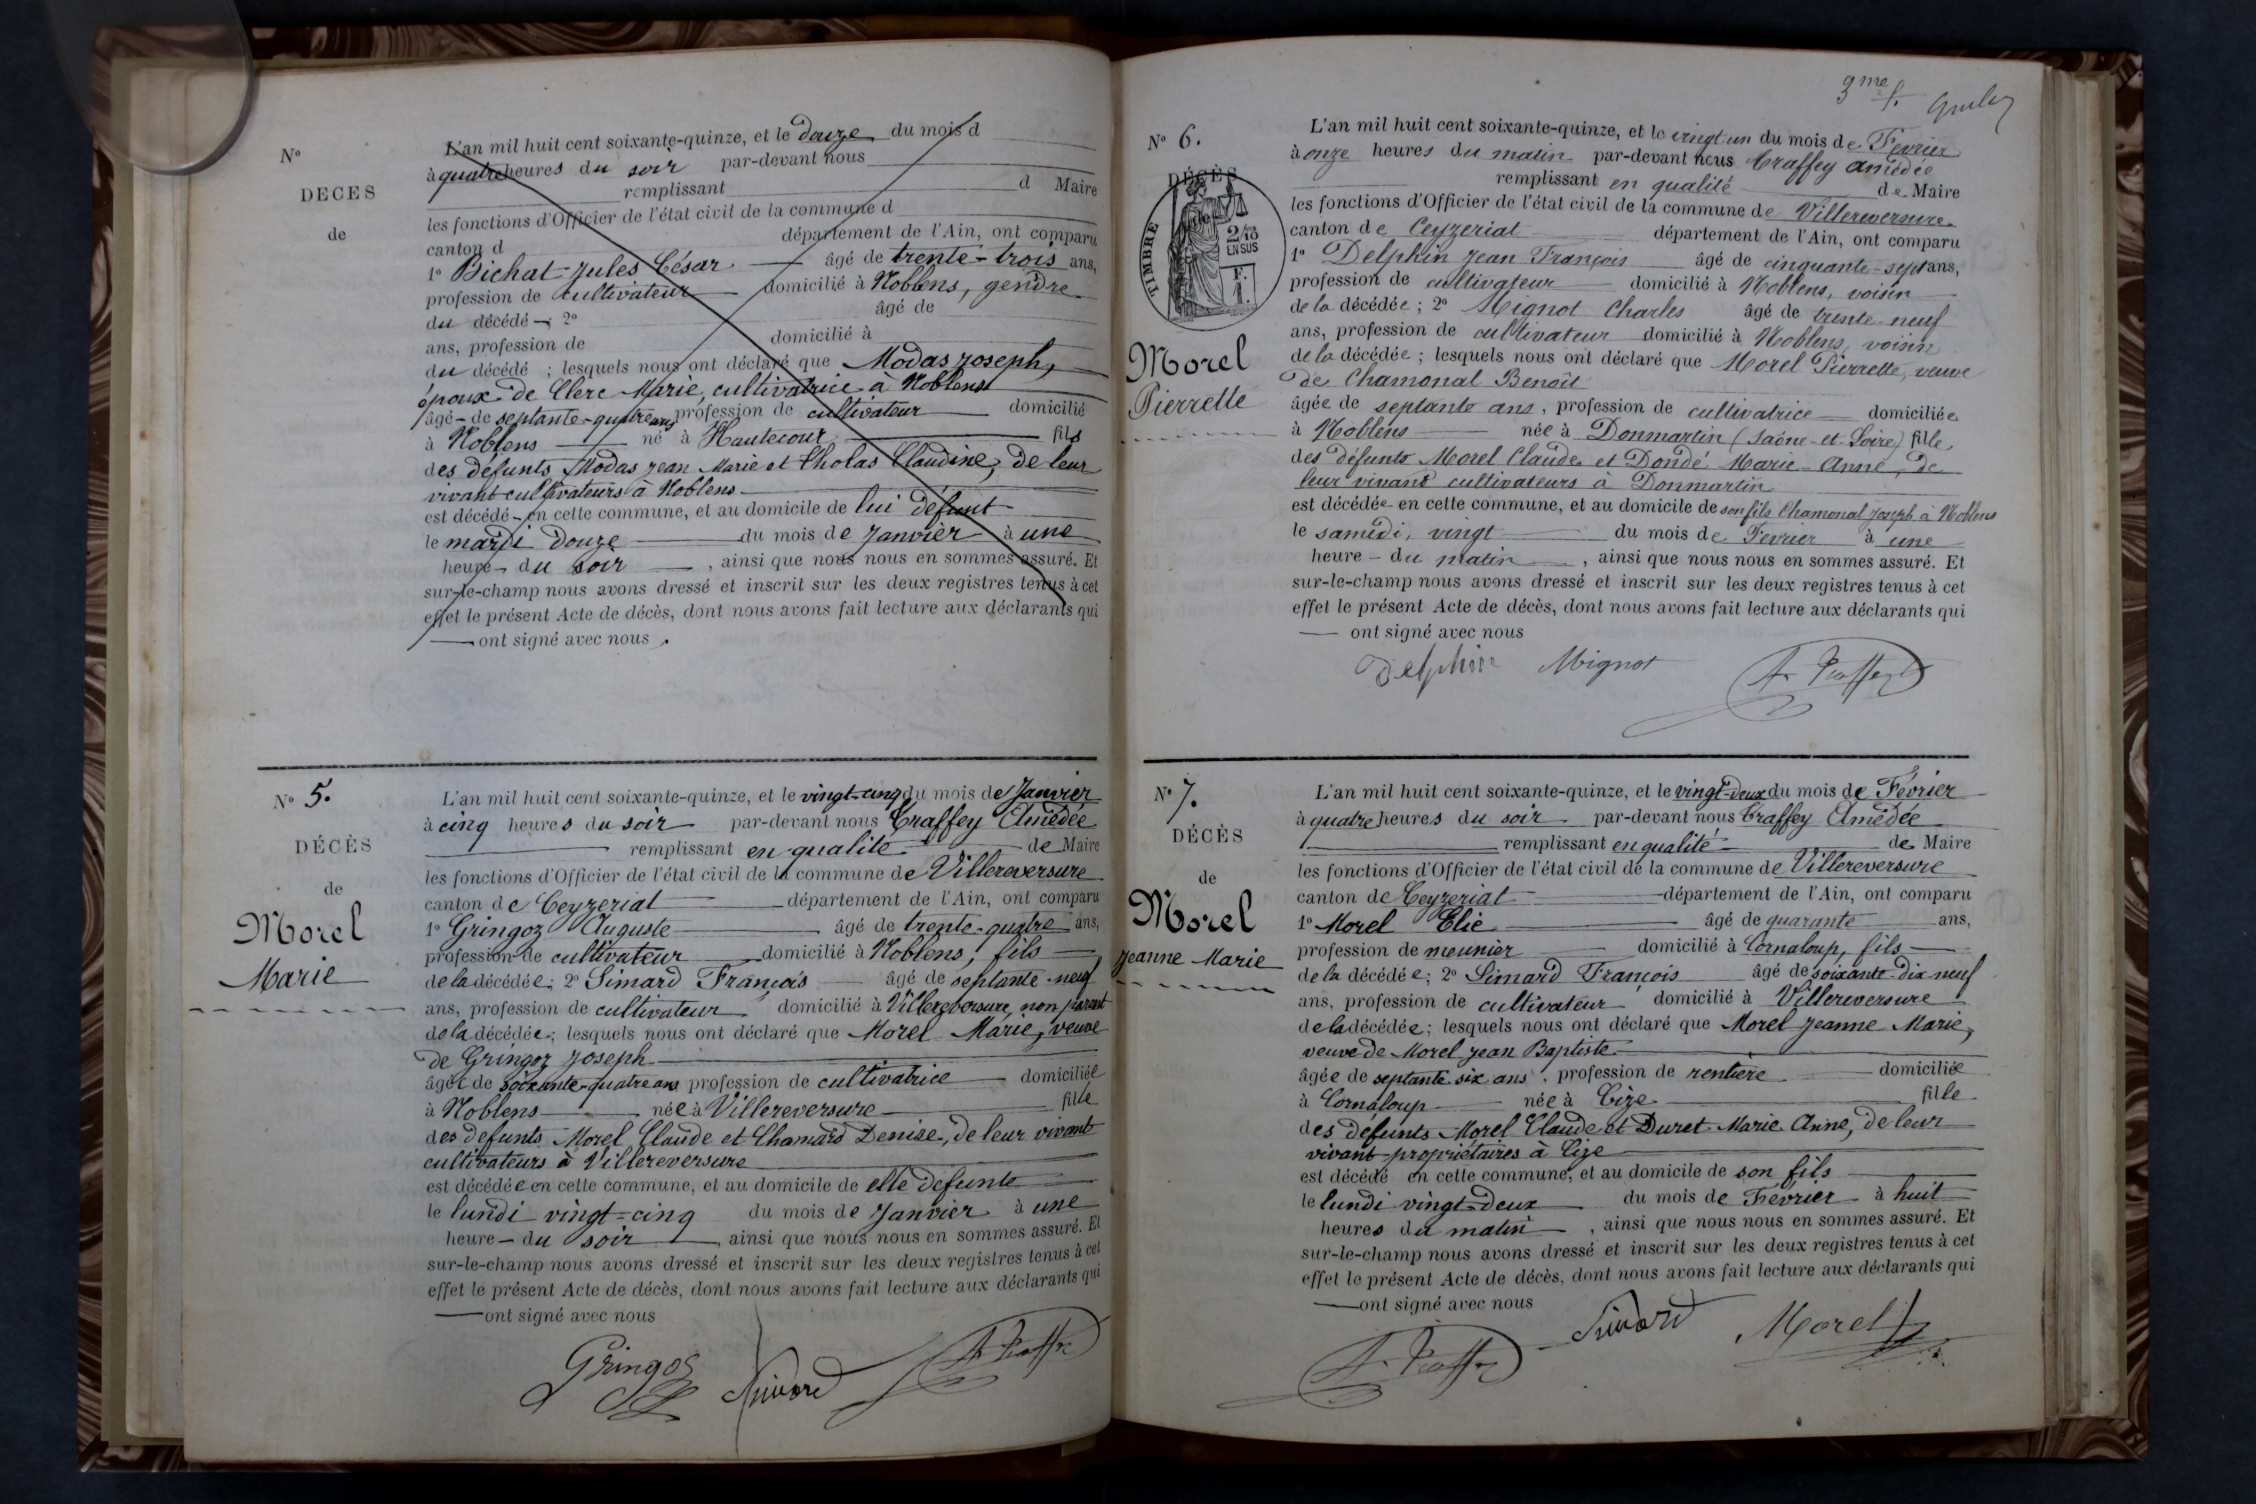 N°
DECES
de
L'an mil huit cent soixante-quinze, et le douze du mois d
à quatre heures du soir par-devant nous
remplissant d Maire
les fonctions d'Officier de l'état civil de la commune d
canton d département de l'Ain, ont comparu
1° Bichat Jules César âgé de trente-trois ans,
profession de cultivateur domicilié à Noblens, gendre
du décédé ; 2° âgé de
ans, profession de domicilié à
du décédé ; lesquels nous ont déclaré que Modas Joseph,
époux de Clerc Marie, cultivatrice à Noblens
âgé de septante-quatre ans profession de cultivateur domicilié
à Noblens né à Hautecour fils
des défunts Modas Jean Marie et Cholas Claudine, de leur
vivant cultivateurs à Noblens
est décédé en cette commune, et au domicile de lui défunt
le mardi douze du mois de Janvier à une
heure du soir , ainsi que nous nous en sommes assuré. Et
sur-le-champ nous avons dressé et inscrit sur les deux registres tenus à cet
effet le présent Acte de décès, dont nous avons fait lecture aux déclarants qui
ont signé avec nous.
N° 5.
DÉCÈS
de
Morel
Marie
L'an mil huit cent soixante-quinze, et le vingt-cinq du mois de Janvier
à cinq heures du soir par-devant nous Traffey Amédée
remplissant en qualité de Maire
les fonctions d'Officier de l'état civil de la commune de Villereversure
canton de Ceyzeriat département de l'Ain, ont comparu
1° Gringoz Auguste âgé de trente-quatre ans,
profession de cultivateur domicilié à Noblens, fils
de la décédée ; 2° Simard François âgé de septante-neuf
ans, profession de cultivateur domicilié à Villereversure, non parent
de la décédée ; lesquels nous ont déclaré que Morel Marie, veuve
de Gringoz Joseph
âgée de soixante-quatre ans profession de cultivatrice domiciliée
à Noblens née à Villereversure fille
des défunts Morel Claude et Chamard Denise, de leur vivant
cultivateurs à Villereversure
est décédée en cette commune, et au domicile de elle défunte
le lundi vingt-cinq du mois de Janvier à une
heure du soir , ainsi que nous nous en sommes assuré. Et
sur-le-champ nous avons dressé et inscrit sur les deux registres tenus à cet
effet le présent Acte de décès, dont nous avons fait lecture aux déclarants qui
ont signé avec nous
Gringoz Simard A. Traffey
3me f.
N° 6.
DÉCÈS
de
TIMBRE
2/10
EN SUS
F.
Morel
Pierrette
L'an mil huit cent soixante-quinze, et le vingt un du mois de Février
à onze heures du matin par-devant nous Traffey Amédée
remplissant en qualité de Maire
les fonctions d'Officier de l'état civil de la commune de Villereversure
canton de Ceyzeriat département de l'Ain, ont comparu
1° Delphin Jean François âgé de cinquante-sept ans,
profession de cultivateur domicilié à Noblens, voisin
de la décédée ; 2° Mignot Charles âgé de trente neuf
ans, profession de cultivateur domicilié à Noblens, voisin
de la décédée ; lesquels nous ont déclaré que Morel Pierrette, veuve
de Chamonal Benoît
âgée de septante ans, profession de cultivatrice domiciliée
à Noblens née à Donmartin (Saône-et-Loire) fille
des défunts Morel Claude et Dondé Marie-Anne, de
leur vivant cultivateurs à Donmartin
est décédée en cette commune, et au domicile de son fils Chamonal Joseph à Noblens
le samedi, vingt du mois de Février à une
heure du matin , ainsi que nous nous en sommes assuré. Et
sur-le-champ nous avons dressé et inscrit sur les deux registres tenus à cet
effet le présent Acte de décès, dont nous avons fait lecture aux déclarants qui
ont signé avec nous
Delphin Mignot A. Traffey
N° 7.
DÉCÈS
de
Morel
Jeanne Marie
L'an mil huit cent soixante-quinze, et le vingt-deux du mois de Février
à quatre heures du soir par-devant nous Traffey Amédée
remplissant en qualité de Maire
les fonctions d'Officier de l'état civil de la commune de Villereversure
canton de Ceyzeriat département de l'Ain, ont comparu
1° Morel Elie âgé de quarante ans,
profession de meunier domicilié à Cornaloup, fils
de la décédée ; 2° Simard François âgé de soixante-dix neuf
ans, profession de cultivateur domicilié à Villereversure
de la décédée ; lesquels nous ont déclaré que Morel Jeanne Marie,
veuve de Morel Jean Baptiste
âgée de septante six ans, profession de rentière domiciliée
à Cornaloup née à Cize fille
des défunts Morel Claude et Duret Marie Anne, de leur
vivant propriétaires à Cize
est décédé en cette commune, et au domicile de son fils
le lundi vingt-deux du mois de Février à huit
heures du matin , ainsi que nous nous en sommes assuré. Et
sur-le-champ nous avons dressé et inscrit sur les deux registres tenus à cet
effet le présent Acte de décès, dont nous avons fait lecture aux déclarants qui
ont signé avec nous
A. Traffey Simard Morel